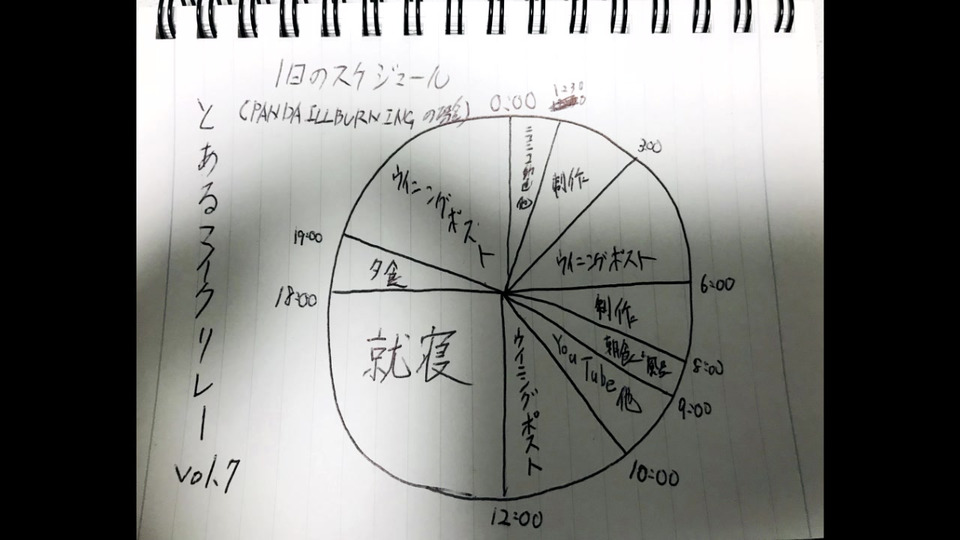 1日のスケジュール
(PANDA ILLBURNING の場合)
とあるマイクリレー
vol.7
0:00
1230
ニコニコ動画他
制作
3:00
ウイニングポスト
6:00
制作
8:00
朝食と風呂
9:00
YouTube他
10:00
ウイニングポスト
12:00
就寝
18:00
夕食
19:00
ウイニングポスト